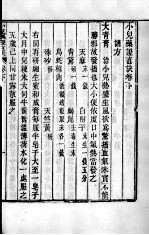 小兒藥證直訣卷下
諸方
大青膏 治小兒熱盛生風欲為驚搐血氣未實不能
勝邪故發搐也大小便依度口中氣熱當發之
天麻末一錢 白附子末生一錢五分
蝎尾去毒生 一錢
烏蛇稍肉酒浸焙乾取末各一錢
硃砂研 天竺黃研
右同再研細生蜜和成膏每服半皂子大至一皂子
大月中兒粳米大同牛黃膏溫薄荷水化一處服之
五歲已上同甘露散服之